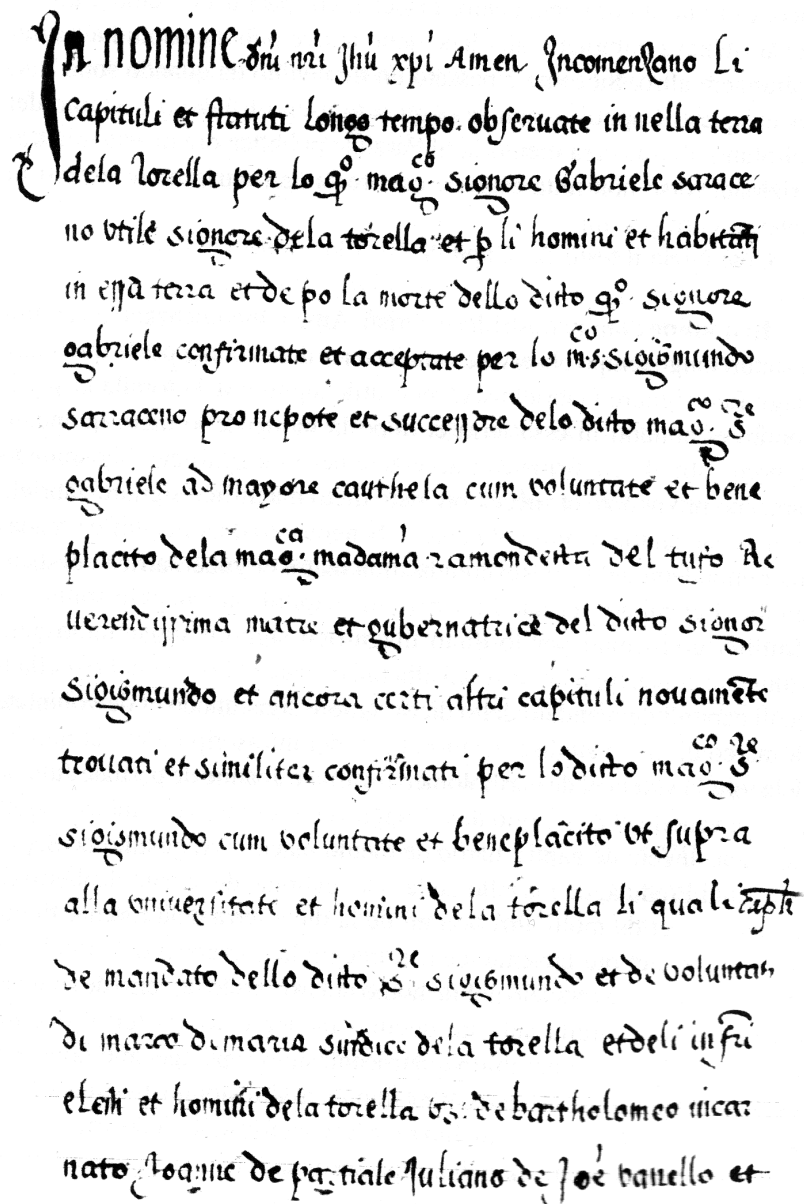 In nomine dnī nrī Jhū xpī Amen Incomenzano Li
capituli et statuti longo tempo observate in nella terra
dela torella per lo qº magco signore Gabriele sarace
no utile signore dela torella et p li homini et habitāti
in essa terra et depo la morte dello ditto qº signore
gabriele confirmate et acceptate per lo mco s. sigismundo
sarraceno pronepote et successore delo ditto magco Sre
gabriele ad mayore cauthela cum voluntate et bene
placito dela magca madama ramondetta del tufo Re
verendissima matre et gubernatrice del ditto signor
Sigismundo et ancora certi altri capituli novamēte
trovati et similiter confirmati per lo ditto magco Sre
sigismundo cum voluntate et beneplacito ut supra
alla universitate et homini dela torella li quali capli
de mandato dello ditto Sre sigismundo et de voluntati
di marco di maria sindico dela torella et deli infrī
eletti et homini dela torella vz. de bartholomeo vicar
nato Joanne de partiale Juliano de Joe vanello et